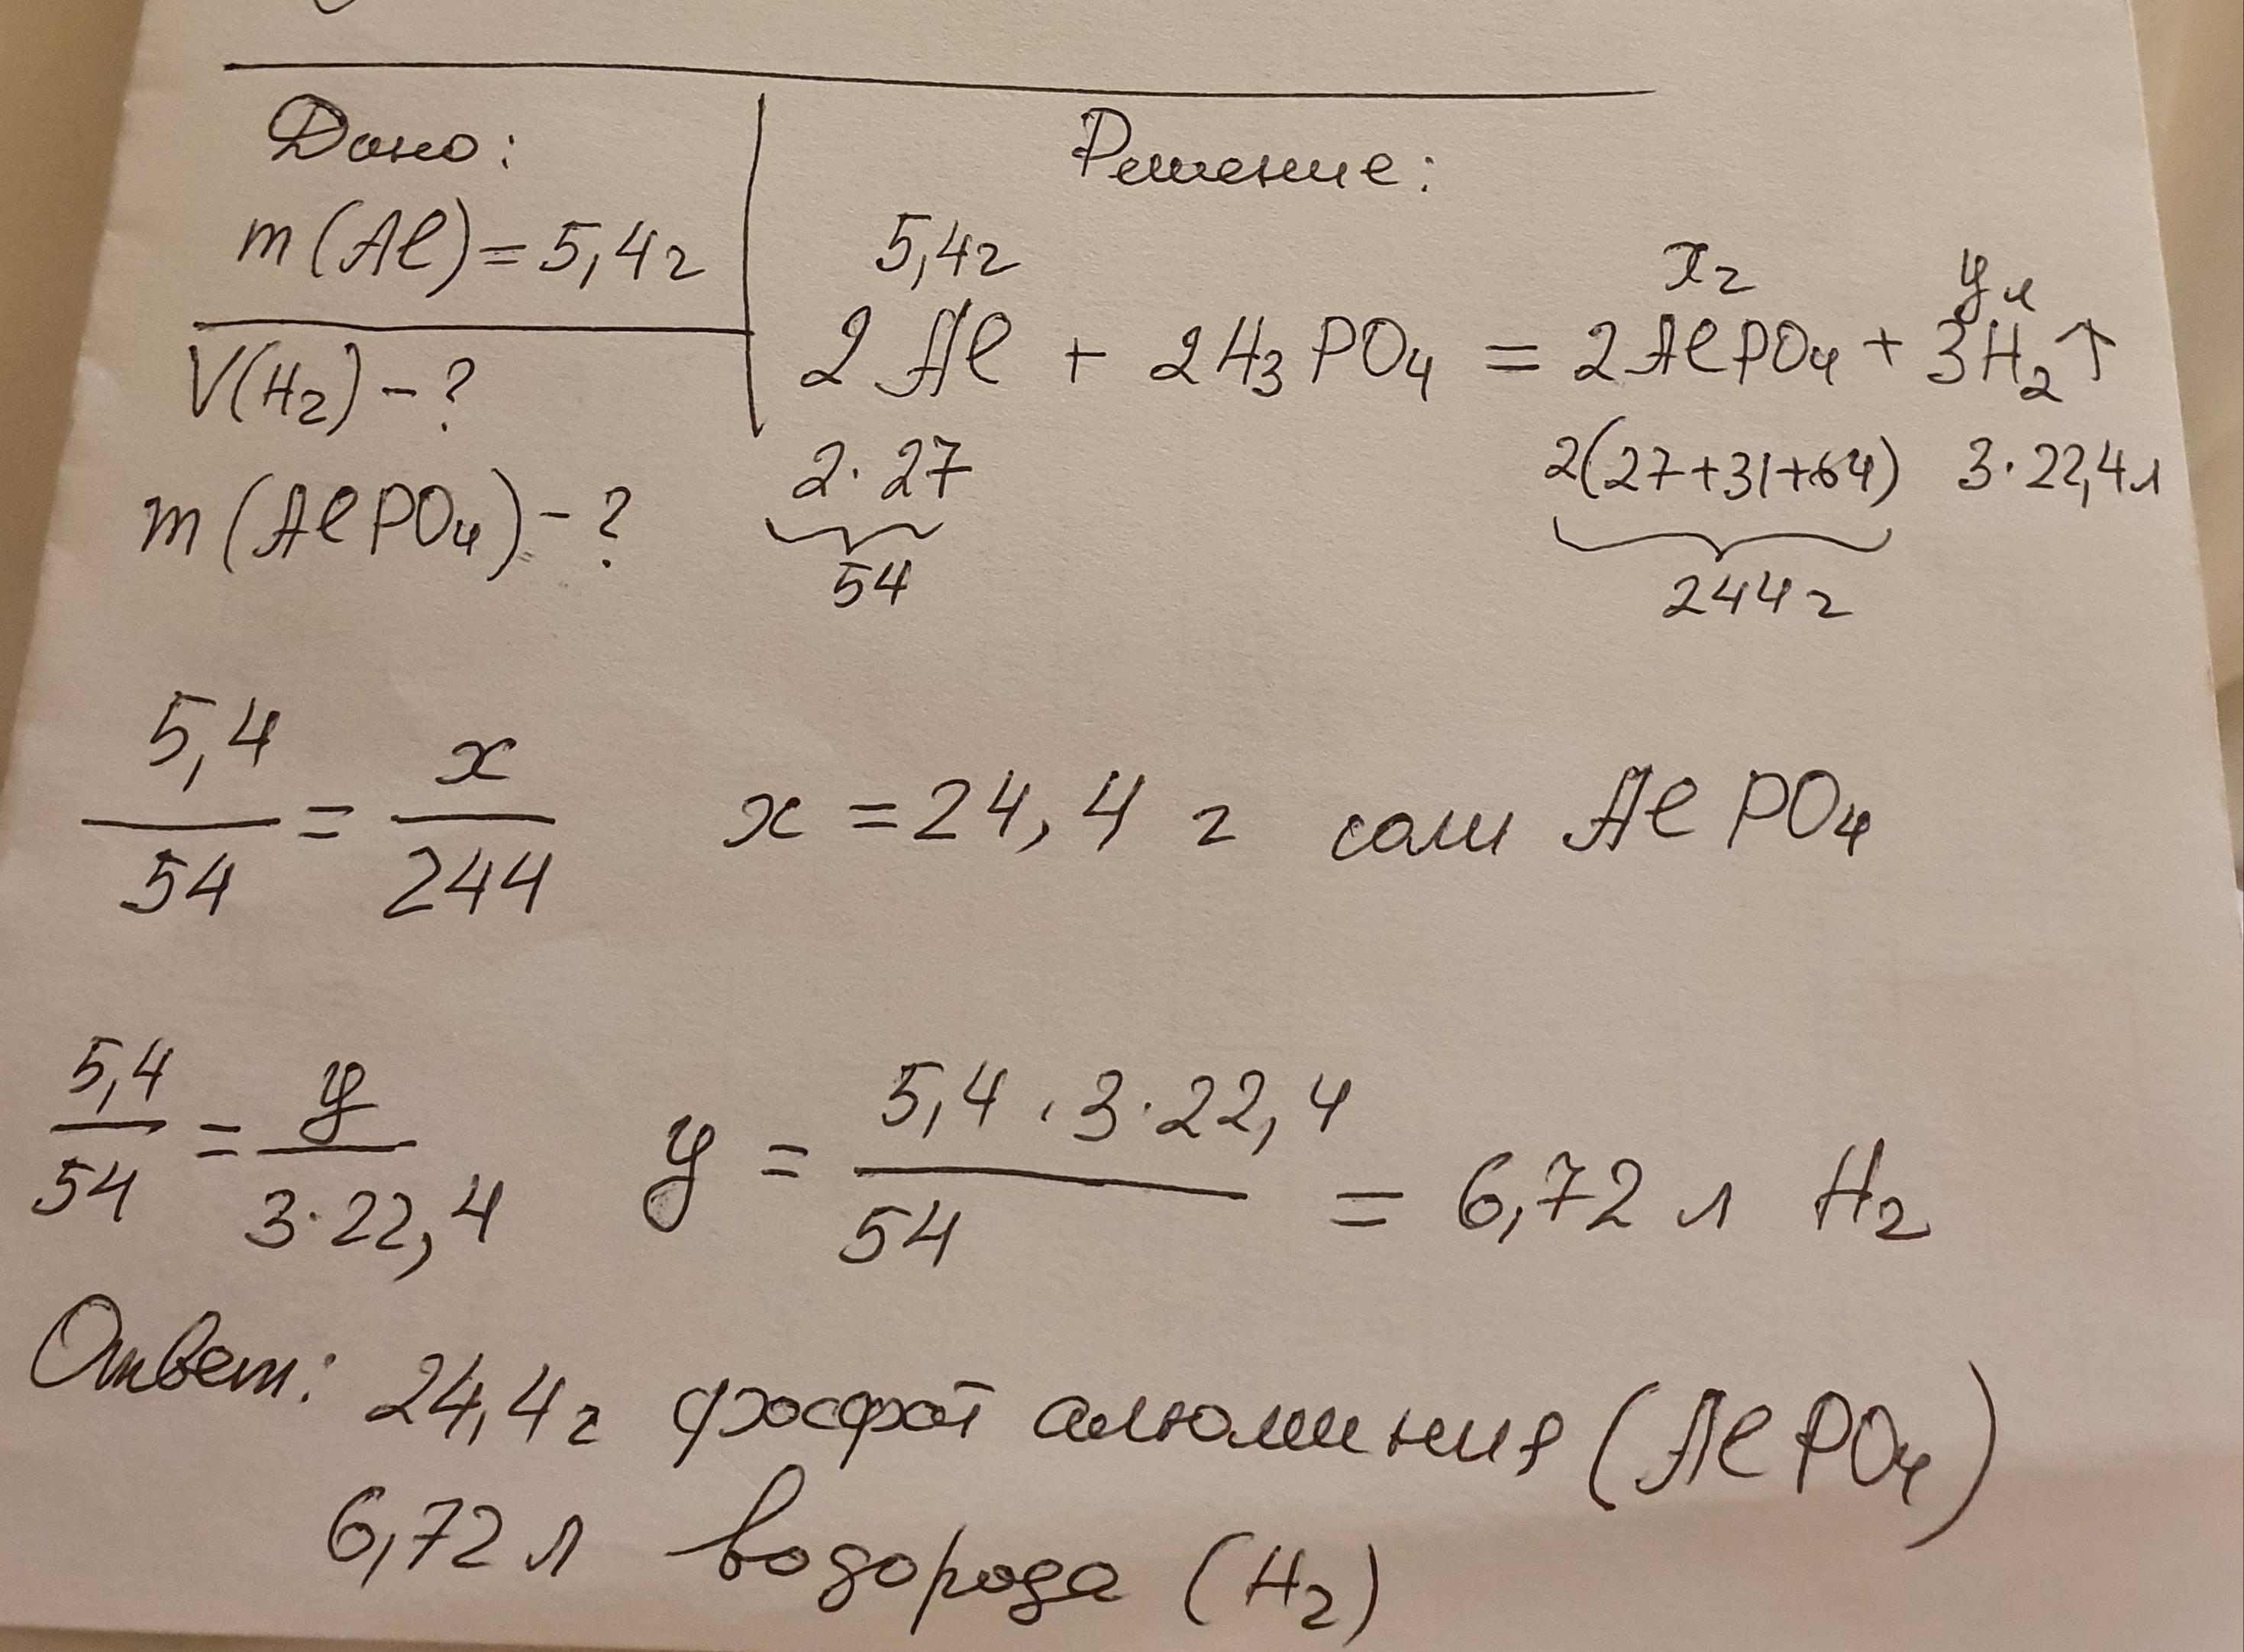 Дано:
m(Al)=5,4г
V(H₂)-?
m(AlPO₄)-?
Решение:
5,4г xг yл
2Al + 2H₃PO₄ = 2AlPO₄ + 3H₂↑
2·27 2(27+31+64) 3·22,4л
54 244г
5,4/54 = x/244 x = 24,4 г соли AlPO₄
5,4/54 = y/3·22,4 y = 5,4·3·22,4/54 = 6,72 л H₂
Ответ: 24,4г фосфат алюминия (AlPO₄)
6,72 л водорода (H₂)